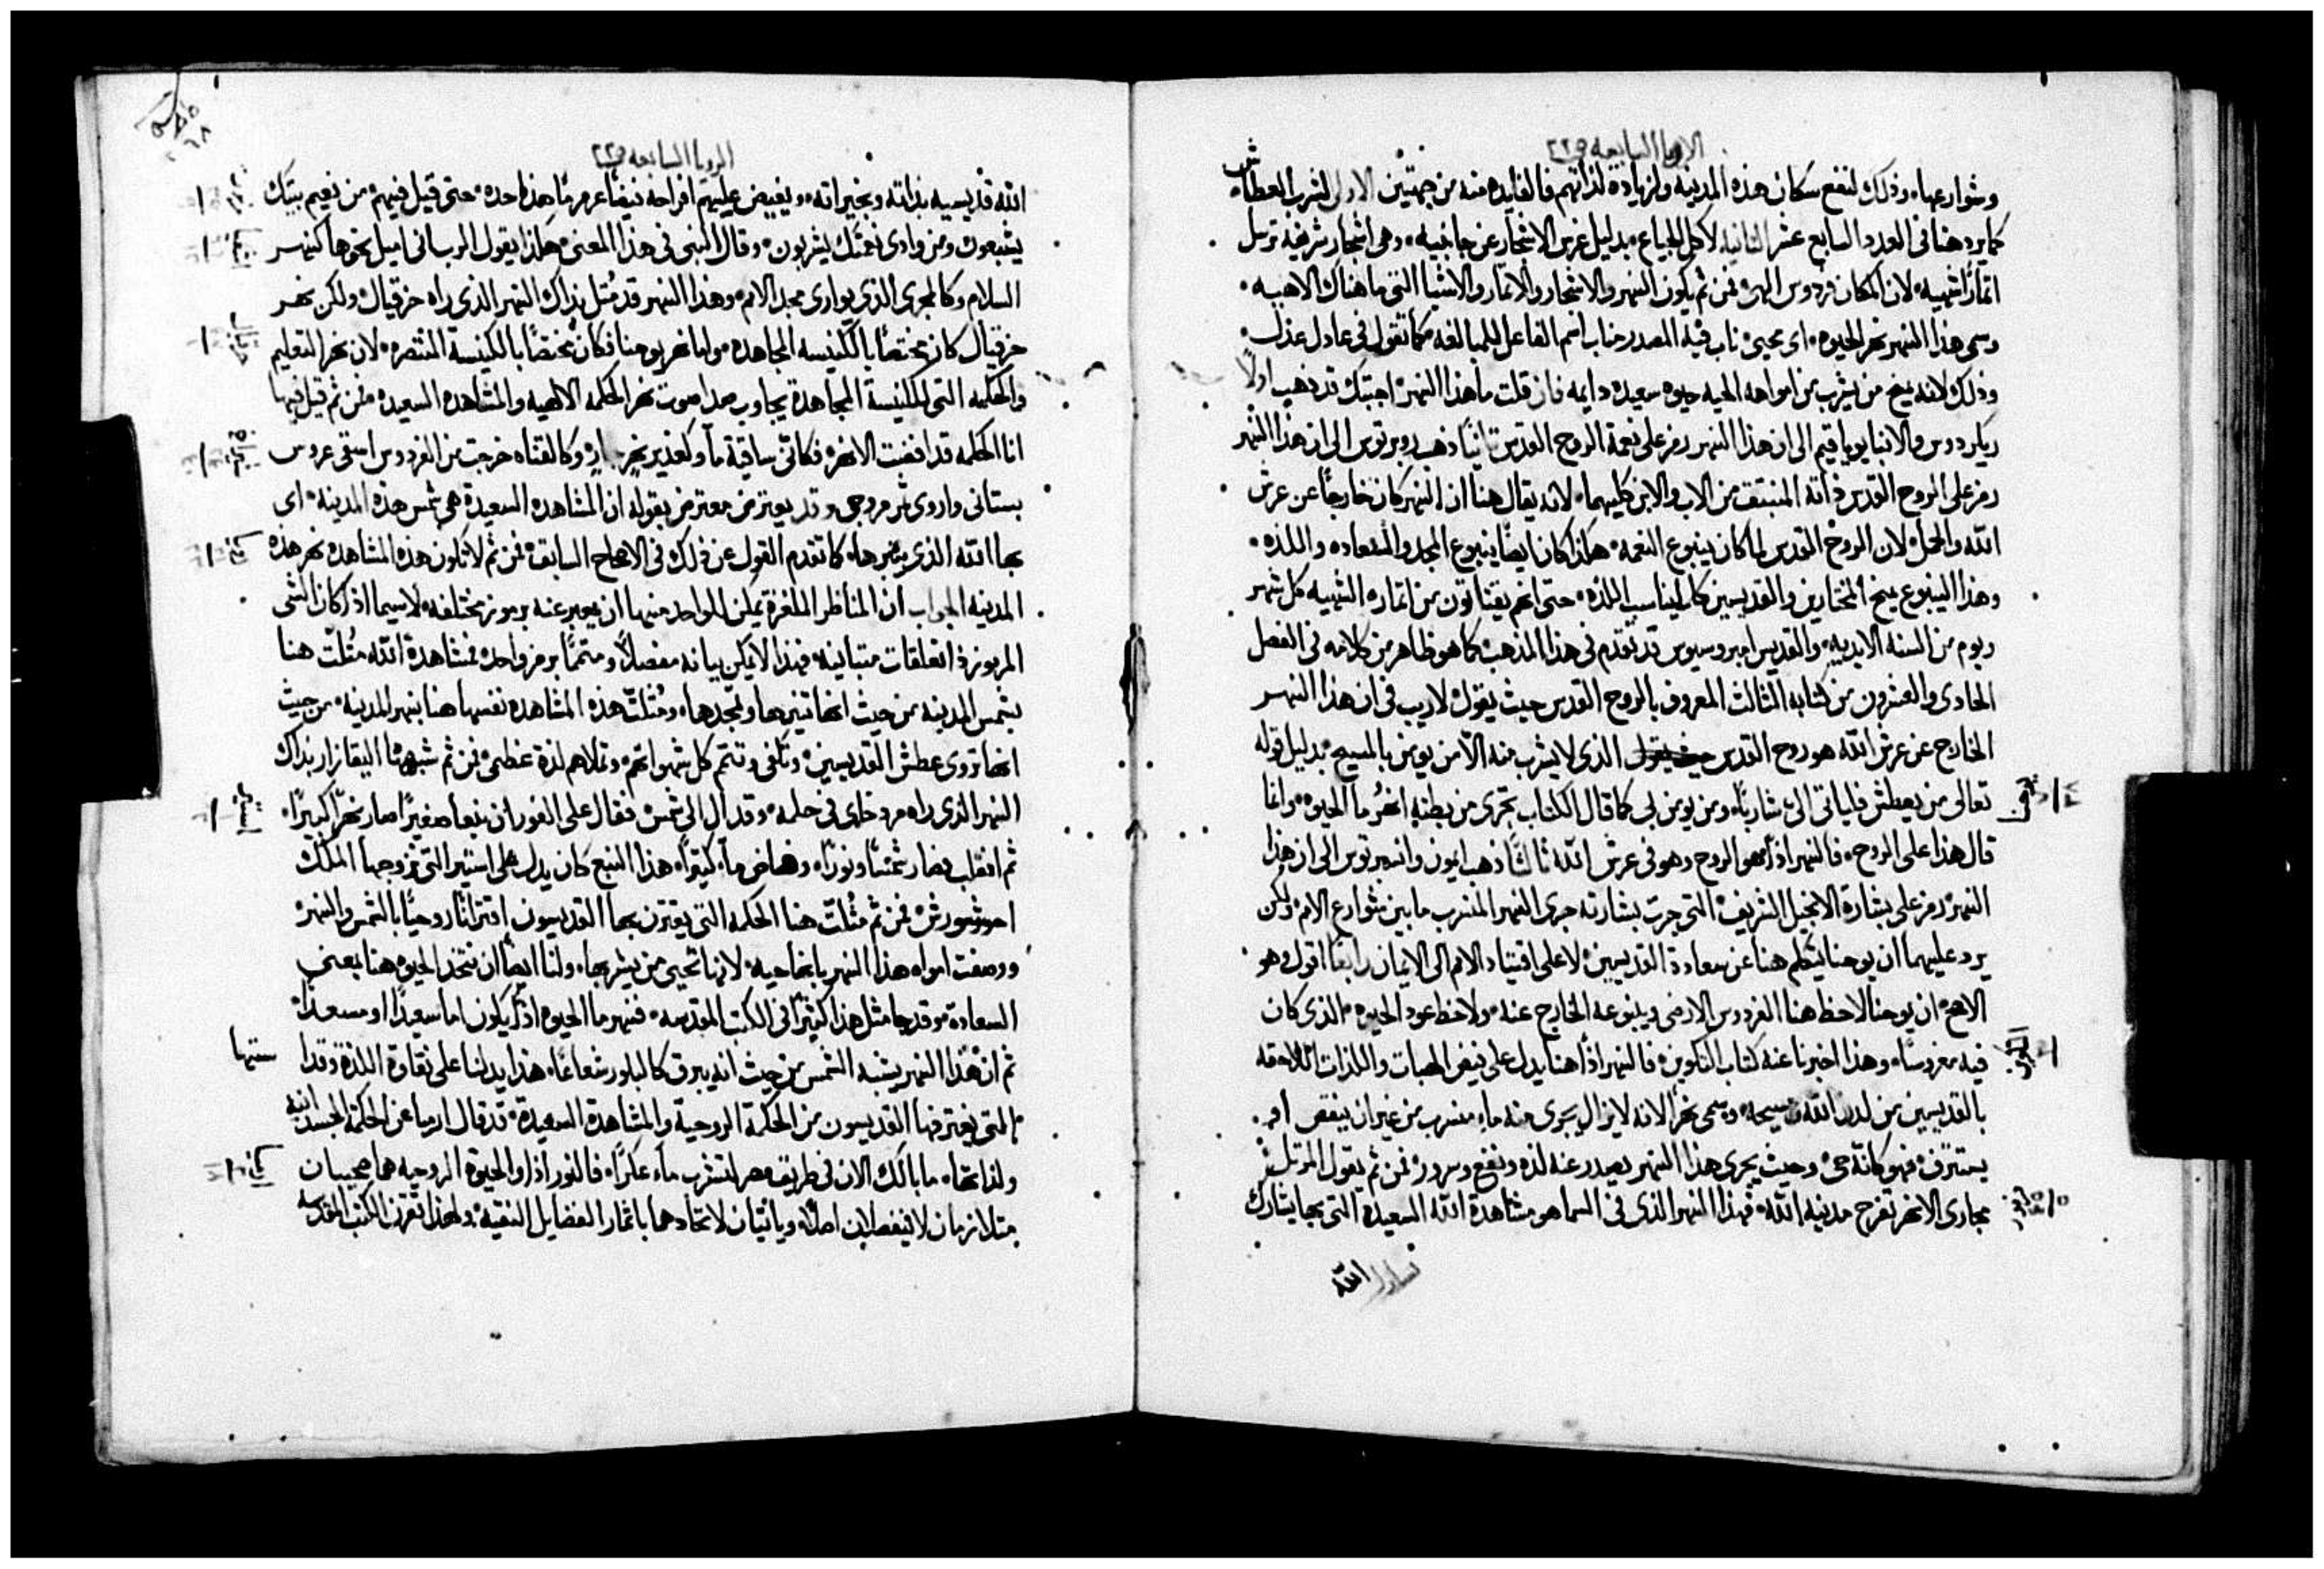 الرويا السابعه ف٢٢
وشوارعها، وذلك لنفع سكان هذه المدينه ولزيادة لذاتهم فالفايده منه من جهتين الاولى لشرب العطاش
كما يرد هنا فى العدد السابع عشر الثانيه لاكل الجياع، بدليل غرس الاشجار عن جانبيه، وهى اشجار شريفة ترسل
اثمارًا شهيه، لان المكان فردوس الهى، فمن ثم يكون النهر والاشجار والاثمار والاشيا التى ما هناك الاهيه،
وسمى هذا النهر نهر الحيوه، اى محيى، ناب فيه المصدر مناب اسم الفاعل للمبالغه كما تقول فى عادل عدل،
وذلك لانه يمنح من يشرب من امواهه الحيه حيوه سعيده دايمه فان قلت ما هذا النهر، اجبتك قد ذهب اولًا
ريكردوس والانبا يوياقيم الى ان هذا النهر رمز على نعمة الروح القدس ثانيًا ذهب روبرتوس الى ان هذا النهر
رمز على الروح القدس ذاته المنبثق من الاب والابن كليهما، لانه يقال هنا ان النهر كان خارجًا عن عرش
الله والحمل، لان الروح القدس لما كان ينبوع النعمه، هكذا كان ايضًا ينبوع المجد والسعاده واللذه،
وهذا الينبوع يمنح المختارين والقديسين كل يناسب اللذه، حتى انهم يقتاتون من اثماره الشهيه كل شهر
ويوم من السنه الابديه، والقديس امبروسيوس قد تقدم فى هذا المذهب كما هو ظاهر من كلامه فى الفصل
الحادى والعشرون من كتابه الثالث المعروف بالروح القدس حيث يقول لا ريب فى ان هذا النهر
الخارج عن عرش الله هو روح القدس الذى لا يشرب منه الا من يومن بالمسيح، بدليل قوله
تعالى من يعطش فلياتى الىّ شاربًا، ومن يومن بى كما قال الكتاب تجرى من بطنه انهرُ ما الحيوه، وانما
قال هذا على الروح، فالنهر اذًا هو الروح وهو فى عرش الله ثالثًا ذهب ايمون وانسبرتوس الى ان هذا
النهر رمز على بشارة الانجيل الشريف، التى جرت بشارته جرى النهر المنسرب ما بين شوارع الامم، ولكن
يرد عليهما ان يوحنا يتكلم هنا عن سعادة القديسين، لا على اقتياد الامم الى الايمان رابعًا اقول وهو
الاصح، ان يوحنا لاحظ هنا الفردوس الارضى وينبوعه الخارج عنه، ولاحظ عود الحيوه، الذى كان
فيه مغروسًا، وهذا اخبرنا عنه كتاب التكوين، فالنهر اذًا هنا يدل على فيض الهبات واللذات اللاحقه
بالقديسين من لدن الله ومسيحه، وسمى نهرًا لانه لا يزال يجرى منه ماء منسرب من غير ان ينقص او
يستنزف، فهو كانه حى، وحيث يجرى هذا النهر يصدر عنه لذه ونفع وسرور، فمن ثم يقول المرتل
مجارى الانهر تفرح مدينة الله، فهذا النهر الذى فى السما هو مشاهدة الله السعيدة التى بها يشارك
الله
الرويا السابعه ف٢٢
الله قديسيه بذاته وبخيراته، ويفيض عليهم افراحه فيضًا عرمرمًا هذا حده، حتى قيل فيهم، من نعيم بيتك
يشبعون ومن وادى نعمتك يشربون، وقال النبى فى هذا المعنى، هكذا يقول الرب انى اميل نحوها كنهر
السلام وكالمجرى الذى يوارى مجد الامم، وهذا النهر قد مُثل بذاك النهر الذى راه حزقيال، ولكن نهر
حزقيال كان مختصًا بالكنيسه المجاهده، واما نهر يوحنا فكان مختصًا بالكنيسة المنتصره، لان نهر التعليم
والحكمه التى للكنيسة المجاهدة يجاوب صدا صوت نهر الحكمه الالهيه والمشاهده السعيده، فمن ثم قيل فيها
انا الحكمه قد افضت الانهره فكانّى ساقية ماء وكغدير نهر وكالقناه خرجت من الفردوس اسقى غروس
بستانى واروى ثمر مروجى، وقد يعترض معترض بقوله ان المشاهده السعيدة هى شمس هذه المدينه، اى
بها الله الذى ينيرها، كما تقدم القول عن ذلك فى الاصحاح السابق، فمن ثم لا تكون هذه المشاهده نهر هذه
المدينه الجواب ان المناظر الملغزة يمكن للواحد منها ان يعبر عنه برموز مختلفه، لاسيما اذا كان الشى
المرموز ذا تعلقات متباينه، فهذا لا يمكن بيانه مفصلًا ومتممًا برمز واحد، فمشاهدة الله مُثلت هنا
بشمس المدينه من حيث انها تنيرها وتمجدها، ومُثلت هذه المشاهده نفسها هنا بنهر المدينه، من حيث
انها تروى عطش القديسين، وتكفى وتتمم كل شهواتهم، وتملاهم لذة عظمى، فمن ثم شبهها اليقازار بذاك
النهر الذى راه مردخاى فى حلمه، وقد ال الى شمس، فقال على الفور ان نبعًا صغيرًا صار نهرًا كبيرًا،
ثم انقلب فصار شمسًا ونورًا، وفاض ماءً كثيرًا، هذا النبع كان يدل على استير التى تزوجها الملك
احشورش، فمن ثم مُثلت هنا الحكمه التى يقترن بها القديسون اقترانًا روحيًا بالشمس والنهر،
ووصفت امواه هذا النهر بانها حيه، لانها تحيى من يشربها، ولنا ايضًا ان نتخذ الحيوه هنا بمعنى
السعادة، وقد جا مثل هذا كثيرًا فى الكتب المقدسه، فنهر ما الحيوه اذًا يكون اما سعيدًا او مسعدًا،
ثم ان هذا النهر يشبه الشمس من حيث انه يبرق كالبلور شعاعًا، هذا يدلنا على نقاوة اللذة وقداستها
التى يغترفها القديسون من الحكمة الروحية والمشاهدة السعيدة، قد قال ارميا عن الحكمة الجسدانيه
ولذاتها، ما بالك الان فى طريق مصر لتشرب ماء عكرًا، فالنور اذًا والحيوة الروحيه هما صحيبان
متلازمان لا ينفصلان اصلًا، وياتيان لاتحادهما باثمار الفضايل النقيه، ولهذا تقرن الكتب المقدسه